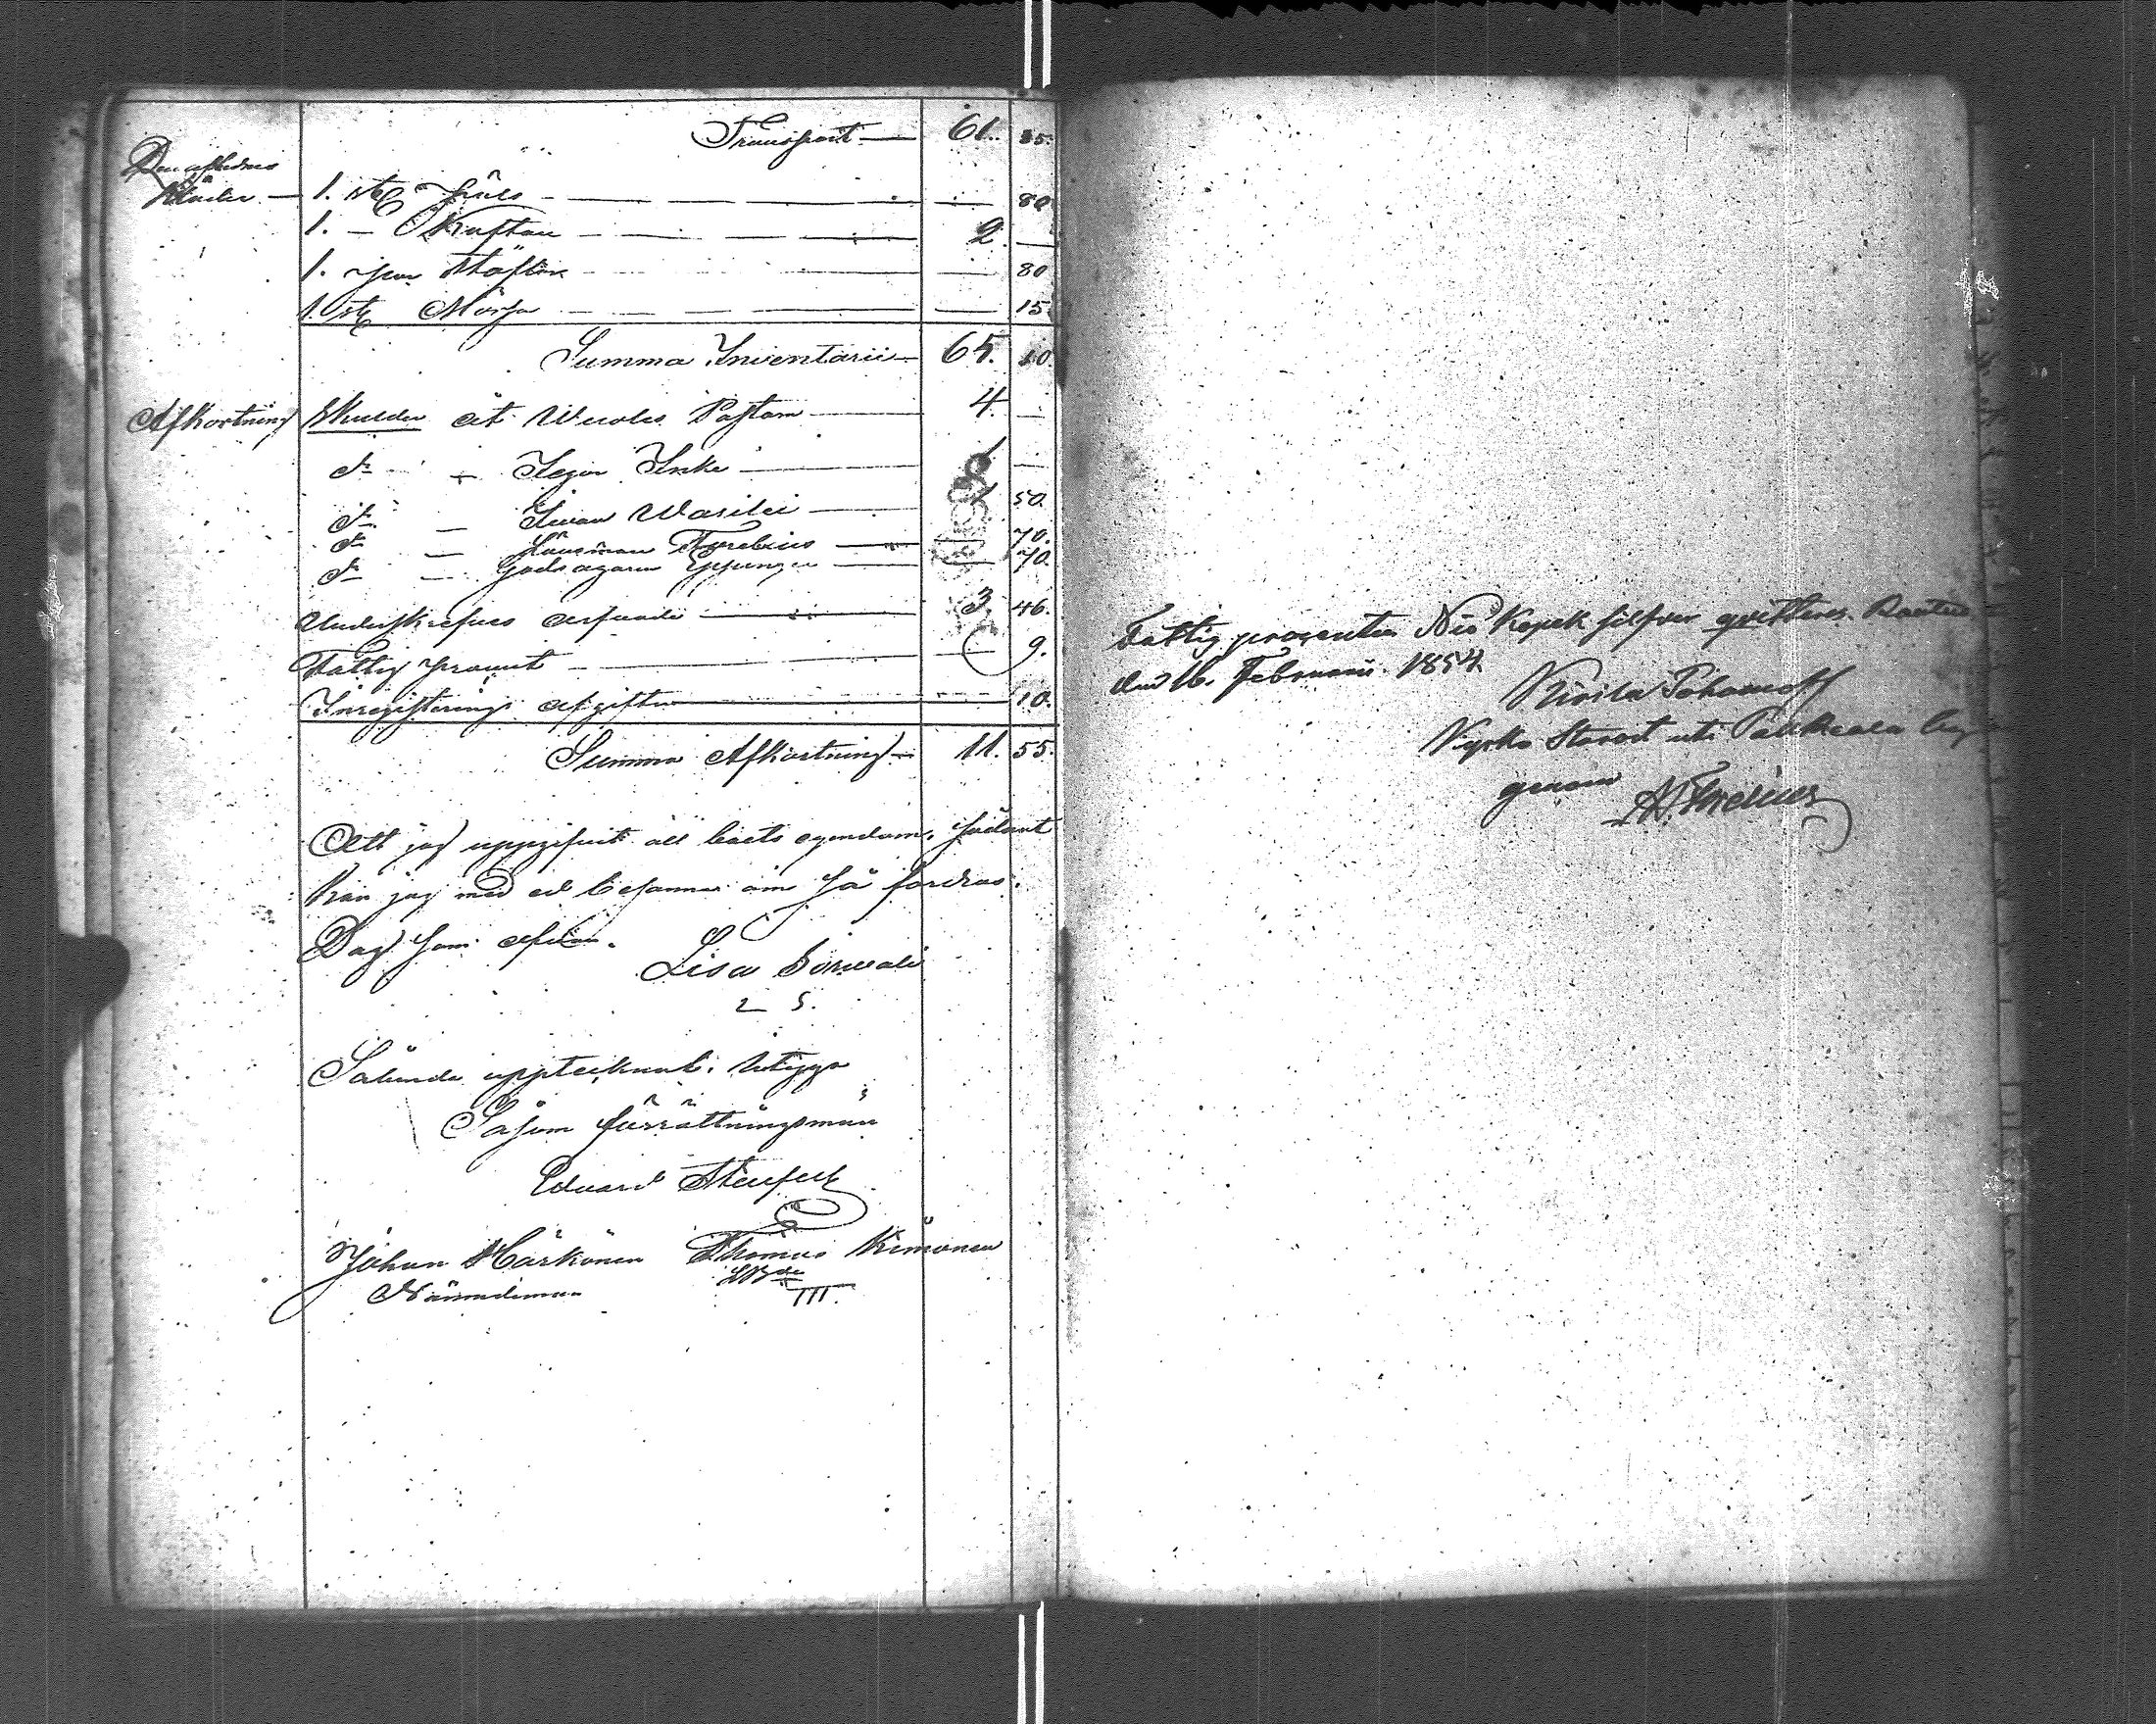 Transport — 61. 35.
Den aflednes
Kläder — 1. st. Päls — 80
1. — Kaftan — 2. —
1. par Stöflar — 80
1. st. Mössa — 15
Summa Inventarii — 65. 10.
Afkortning Skulder åt Pastorn — 4. —
do — Jegor — 1 —
do — Iwan Wasilei — 1 50.
do — Länsman — 70.
do — Godsägaren — 70.
Underskrefnes arfvode — 3. 46.
Fattig procent — 9.
Inregistrerings afgiften — 10.
Summa Afkortning — 11. 55.
Att jag uppgifvit all boets egendom, sådant
kan jag med ed besanna om så fordras.
Dag som ofvan.
Lisa
Sålunda upptecknat, betyga
Såsom förrättningsmän
Eduard
Johan Härkönen Thomas Kimonen
Nämndeman III.
Fattig procenten Nio Kopek silfver qvitteras. Rautus
den 16. Februarii 1854.
Kirila
Kyrko Starost uti Palkeala by
genom